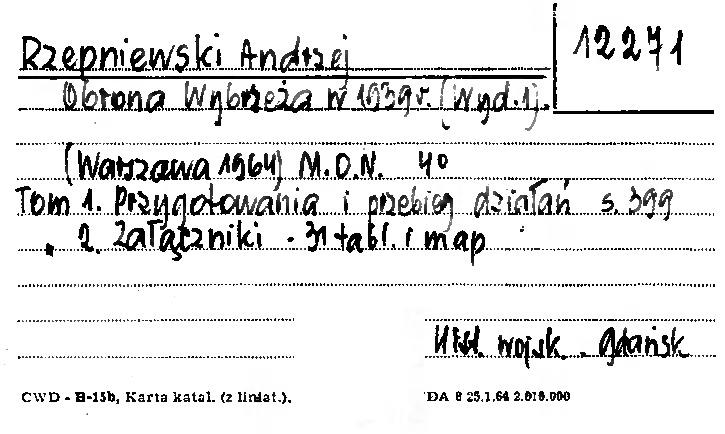 Rzepniewski Andrzej
12271
Obrona Wybrzeża w 1939 r. (Wyd. 1).
(Warszawa 1964) M.O.N. 4°
Tom 1. Przygotowania i przebieg działań s. 399
" 2. Załączniki - 31 tabl. i map
Hist. wojsk. - Gdańsk
CWD - H-15b, Karta katal. (z liniat.).
DA 8 25.1.64 2.010.000